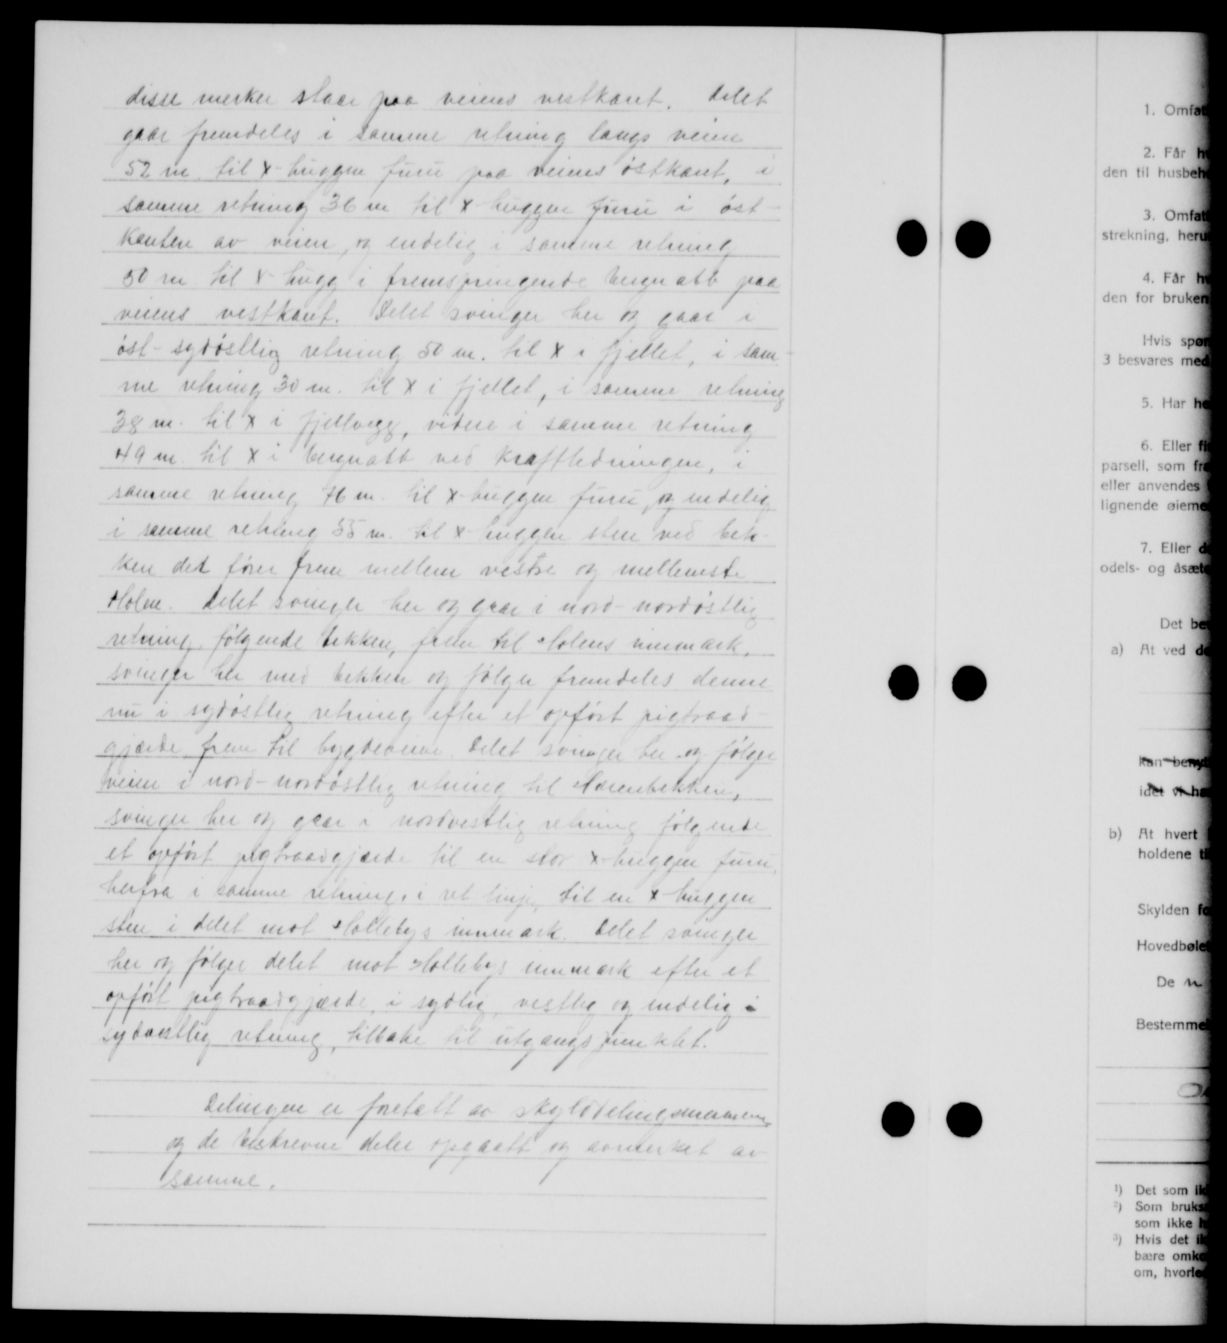 disse merker staar paa veiens vestkant. Delet
gaar fremdeles i samme retning langs veien
52 m. til x-huggen furu paa veiens østkant, i
samme retning 36 m til x-huggen furu i øst-
kanten av veien, og endelig i samme retning
50 m. til x-hugg i fremspringende bergnabb paa
veiens vestkant. Delet svinger her og gaar i
øst-sydøstlig retning 50 m. til x i fjellet, i sam-
me retning 30 m. til x i fjellet, i samme retning
38 m. til x i fjellvegg, videre i samme retning
49 m. til x i bergnabb ved kraftledningen, i
samme retning 76 m. til x-huggen furu, og endelig
i samme retning 55 m. til x-huggen sten ved bek-
ken det fører frem mellem vestre og mellemste
Holen. Delet svinger her og gaar i nord-nordøstlig
retning, følgende bekken, frem til Holens innmark,
svinger her med bekken og følger fremdeles denne
nu i sydøstlig retning efter et opført pigtraad-
gjærde frem til bygdeveien. Delet svinger her og følger
veien i nord-nordøstlig retning til
svinger her og gaar i nordvestlig retning følgende
et opført pigtraadgjærde til en stor x-huggen furu,
herfra i samme retning, i ret linje, til en x-huggen
sten i delet mot Hollebys innmark. Delet svinger
her og følger delet mot Hollebys innmark efter et
opført pigtraadgjærde, i sydlig, vestlig og endelig i
sydvestlig retning, tilbake til utgangspunktet.
Delingen er foretatt av skylddelingsmennene
og de beskrevne deler opgaatt og avmerket av
samme.
1. Omfat
2. Får h
den til husbeh
3. Omfat
strekning, heru
4. Får h
den for bruken
Hvis spør
3 besvares med
5. Har he
6. Eller fi
parsell, som fra
eller anvendes
lignende øieme
7. Eller d
odels- og åsæt
Det be
a) At ved de
kan beny
idet vi ha
b) At hvert
holdene ti
Skylden fo
Hovedbøle
De n
Bestemme
¹) Det som ik
²) Som bruks
som ikke h
³) Hvis det ik
bære omko
om, hvorle